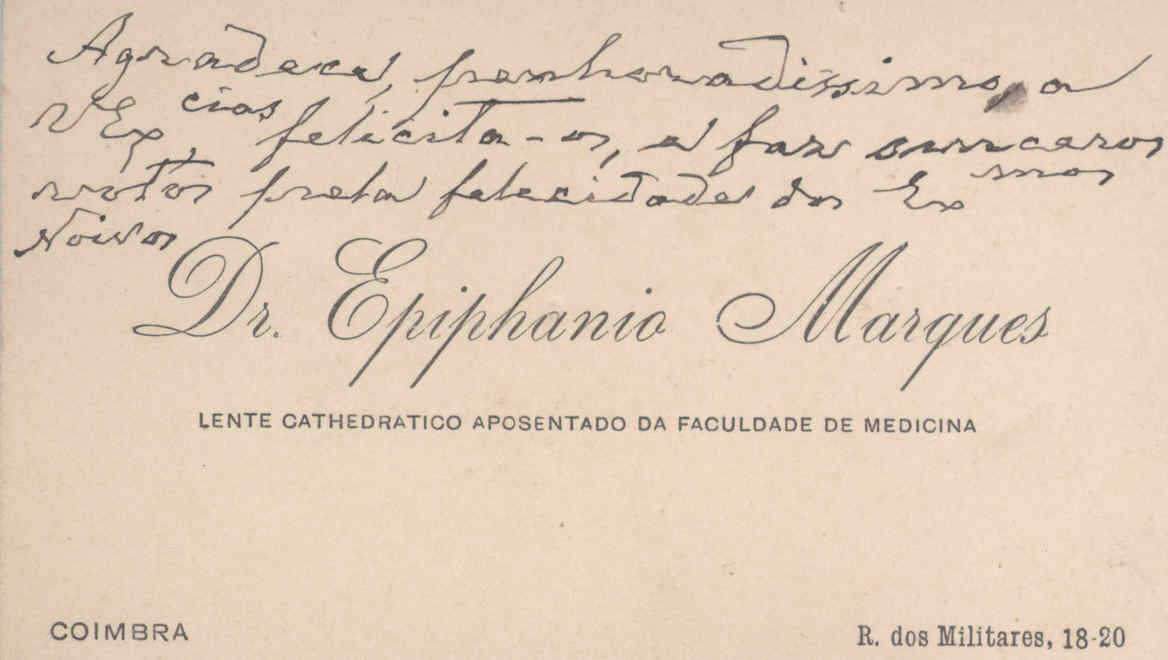 Agradece, penhoradissimo, a
V Ex.cias felicita-os, e faz sinceros
votos pela felicidade dos Exmos
Noivos
Dr. Epiphanio Marques
LENTE CATHEDRATICO APOSENTADO DA FACULDADE DE MEDICINA
COIMBRA
R. dos Militares, 18-20